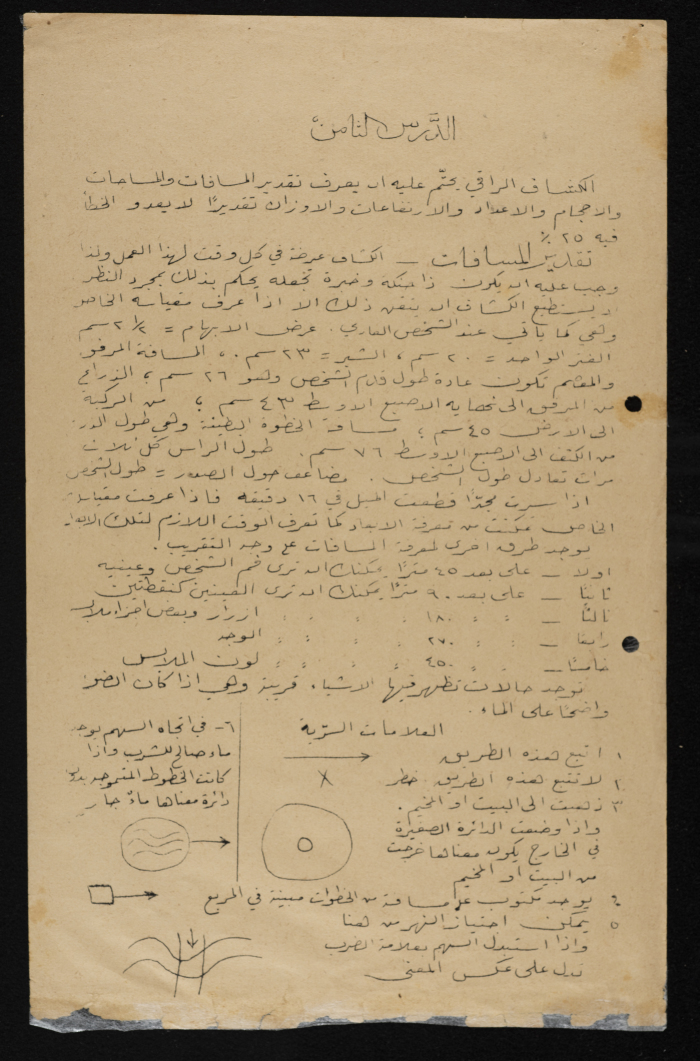 الدرس الثامن
الكشاف الراقي يحتّم عليه ان يعرف تقدير المسافات والمساحات
والاحجام والاعداد والارتفاعات والاوزان تقديرًا لا يعدو الخطأ
فيه ٢٥ ٪
تقدير المسافات — الكشاف عرضة في كل وقت لهذا العمل ولذا
وجب عليه ان يكون ذا حنكة وخبرة تجعله يحكم بذلك بمجرد النظر
لا يستطيع الكشاف ان يتقن ذلك الا اذا عرف مقياسه الخاص
وهي كما يأتي عند الشخص العادي. عرض الابهام = ٢ ١/٢ سم
الفتر الواحد = ٢٠ سم، الشبر = ٢٣ سم.، المسافة المرفق
والمعصم تكون عادة طول قدم الشخص وهو ٢٦ سم، الذراع
من المرفق الى نهاية الاصبع الاوسط ٤٣ سم، من الركبة
الى الارض ٤٥ سم، مسافة الخطوة البطيئة وهي طول
من الكتف الى الاصبع الاوسط ٧٦ سم. طول الراس كل ثلاث
مرات تعادل طول الشخص. مضاعف حول الصدر = طول الشخص
اذا سرت مجدّا قطعت الميل في ١٦ دقيقة فاذا عرفت مقياسك
الخاص تمكنت من معرفة الابعاد كما تعرف الوقت اللازم لتلك الابعاد
يوجد طرق اخرى لمعرفة المسافات على وجه التقريب.
اولا — على بعد ٤٥ مترًا يمكنك ان ترى فم الشخص وعينيه
ثانيًا — على بعد ٩٠ مترًا يمكنك ان ترى العينين كنقطتين
ثالثًا — " " ١٨٠ " " " " ازرار وبعض اجزاء ملابس
رابعا — " " ٢٧٠ " " " " الوجه
خامسًا — " " ٤٥٠ " " " " لون الملابس
توجد حالات تظهر فيها الاشياء قريبة وهي اذا كان الضوء
واضحًا على الماء.
العلامات السرّية
١ اتبع هذه الطريق
٢ لا تتبع هذه الطريق خطر
X
٣ ذهبت الى البيت او المخيم.
واذا وضعت الدائرة الصغيرة
في الخارج يكون معناها خرجت
من البيت او المخيم
٤ يوجد مكتوب على مسافة من الخطوات مبينة في المربع
٥ يمكن اجتياز النهر من هنا
واذا استبدل السهم بعلامة الضرب
تدل على عكس المعنى
٦- في اتجاه السهم يوجد
ماء صالح للشرب واذا
كانت الخطوط المتموجه بدون
دائرة معناها ماءٌ جار